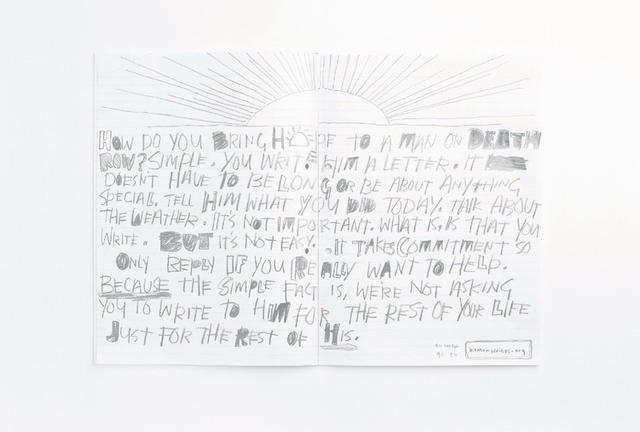 HOW DO YOU BRING HOPE TO A MAN ON DEATH
ROW? SIMPLE. YOU WRITE HIM A LETTER. IT
DOESN'T HAVE TO BE LONG OR BE ABOUT ANYTHING
SPECIAL. TELL HIM WHAT YOU DID TODAY. TALK ABOUT
THE WEATHER. IT'S NOT IMPORTANT. WHAT IS, IS THAT YOU
WRITE. BUT IT'S NOT EASY. IT TAKES COMMITMENT SO
ONLY REPLY IF YOU REALLY WANT TO HELP.
BECAUSE THE SIMPLE FACT IS, WE'RE NOT ASKING
YOU TO WRITE TO HIM FOR THE REST OF YOUR LIFE
JUST FOR THE REST OF HIS.
go to